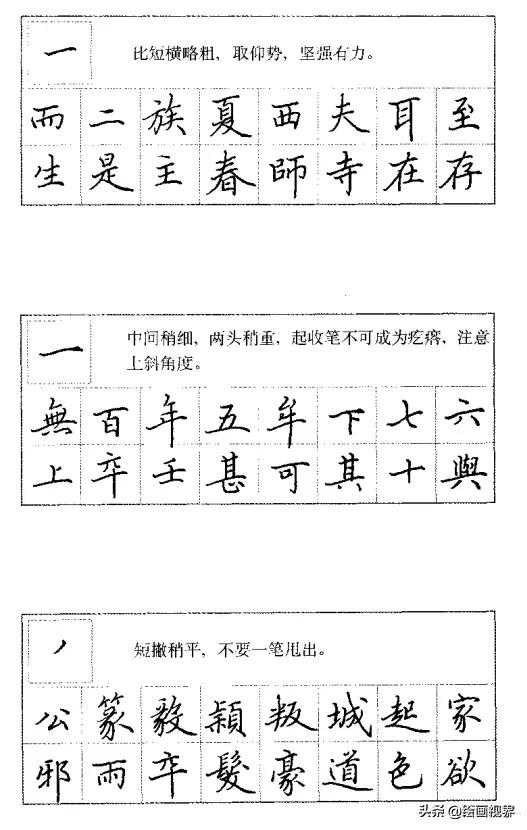 一
比短横略粗，取仰势，坚强有力。
而二族夏西夫耳至
生是主春師寺在存
一
中间稍细，两头稍重，起收笔不可成为疙瘩，注意
上斜角度。
無百年五牟下七六
上卒壬甚可其十與
丿
短撇稍平，不要一笔甩出。
公篆毅穎叛城起家
邪雨卒髮豪道色欲
头条@绘画视界